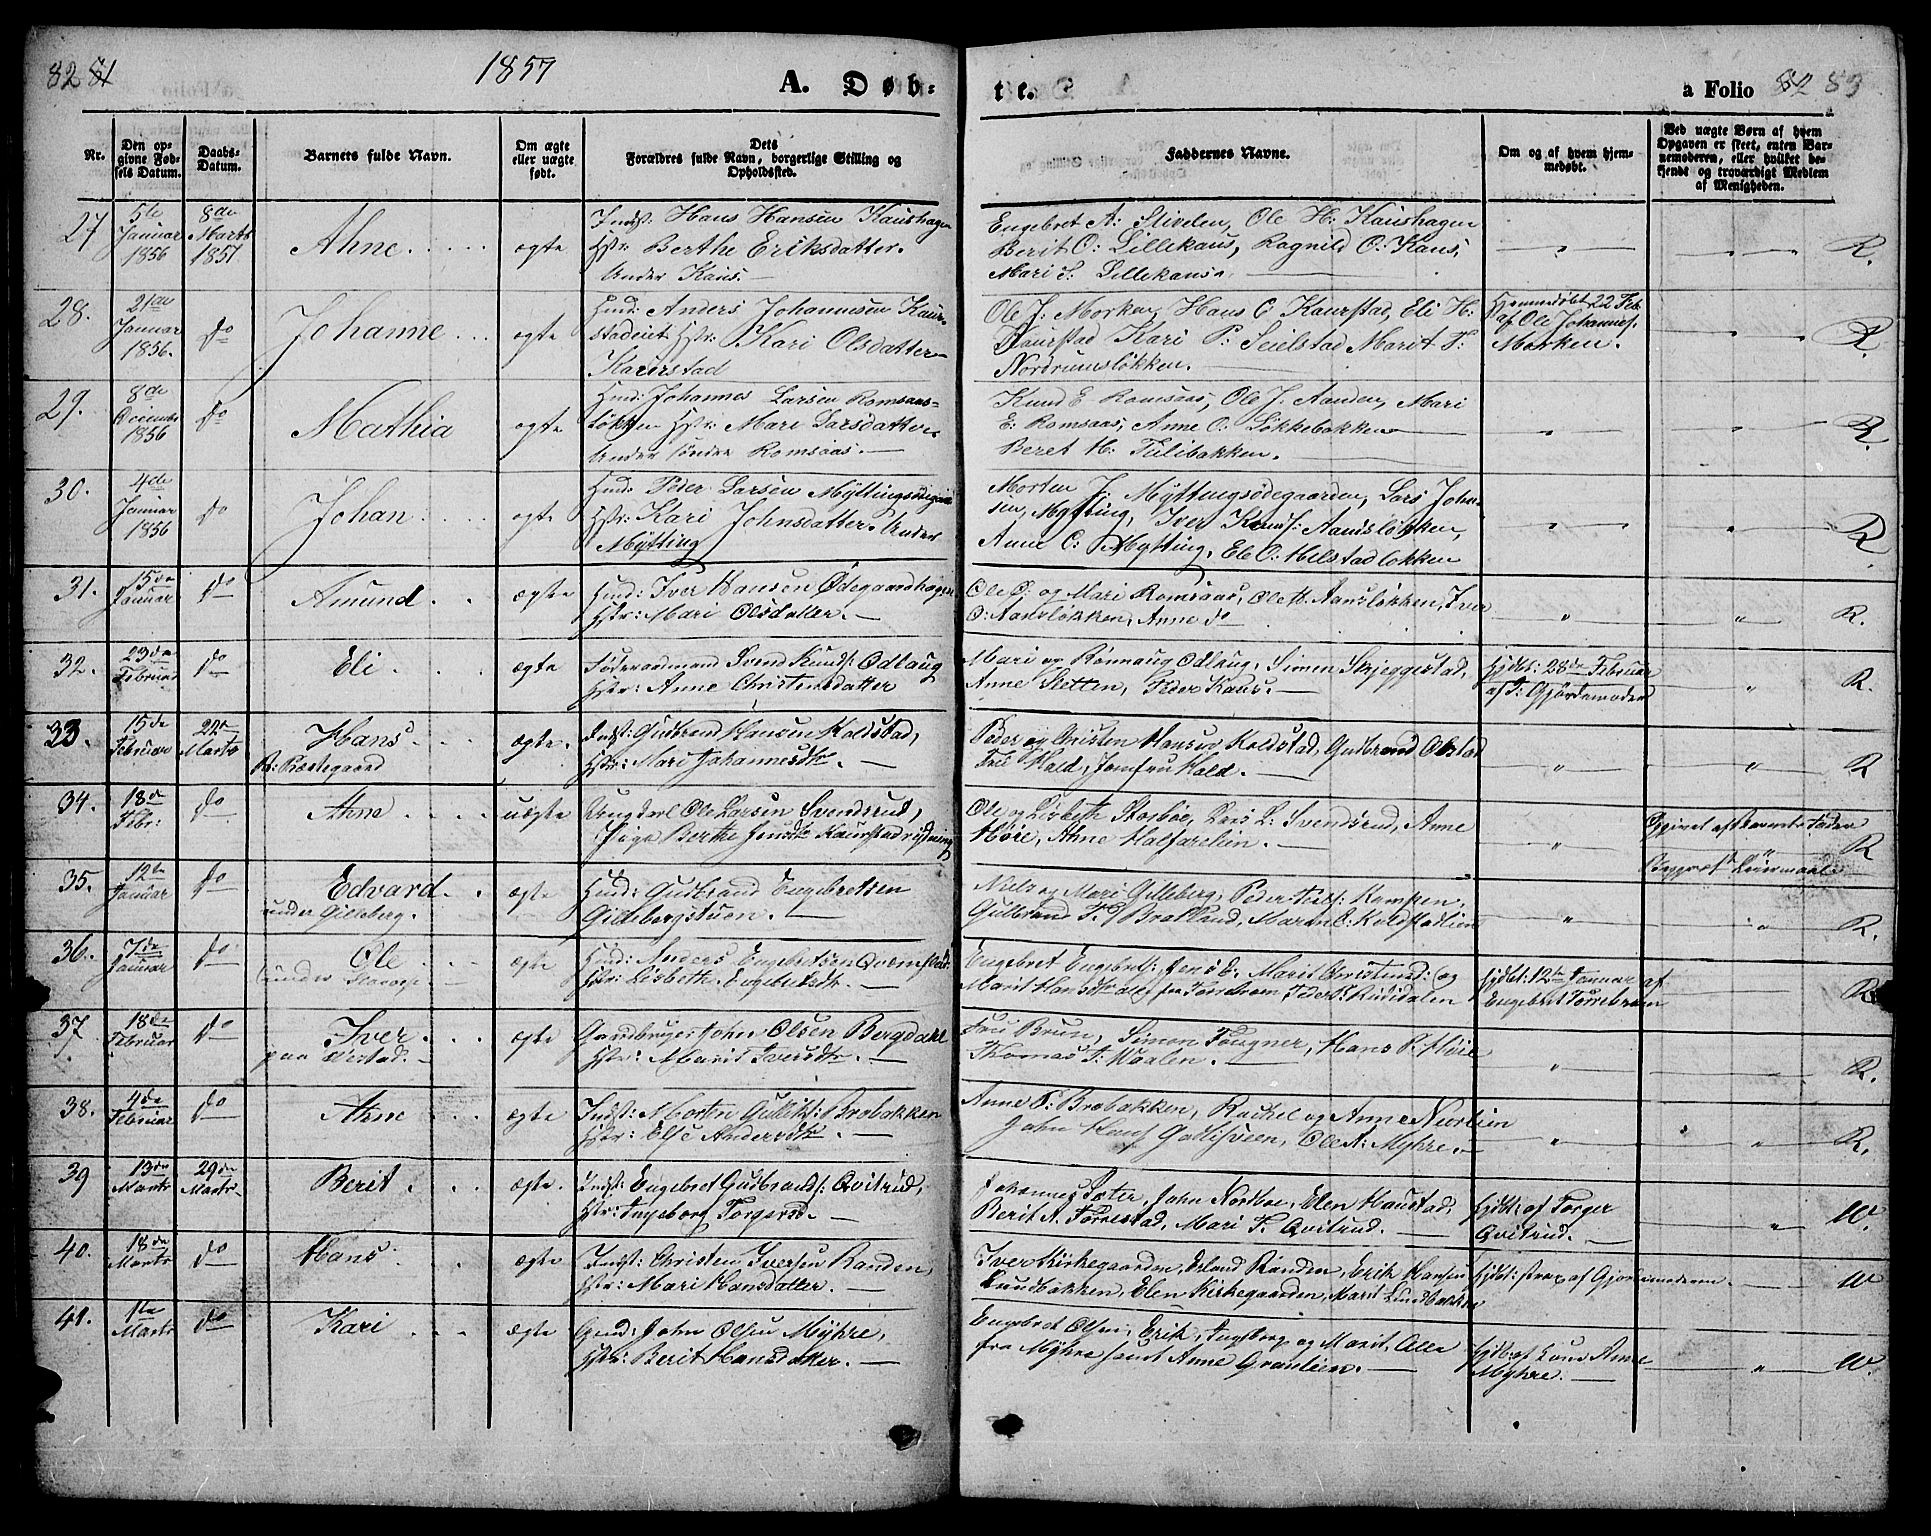 82 81
1857
A. Døb-
te.
a Folio 82 83
Nr.
Den op-
givne Fød-
sels Datum.
Daabs-
Datum.
Barnets fulde Navn.
Om ægte
eller uægte
født.
Dets
Forældres fulde Navn, borgerlige Stilling og
Opholdssted.
Faddernes Navne.
Om og af hvem hjem-
medøbt.
Ved uægte Børn af hvem
Opgaven er skeet, enten Bar-
nemoderen, eller hvilket be-
kjendt og troværdigt Medlem
af Menigheden.
27
5te
Januar
1856
8de
Marts
1857
Ahne
ægte
Indst: Hans Hansen Kaushagen
Hstr: Berthe Eriksdatter.
Under Kaus.
Engebret A: Stivelen, Ole H: Kaushagen
Berit O: Lillekaus, Ragnild O: Kaus,
Mari S. Lillekaus.
R.
28.
21de
Januar
1856.
do
Johanne
ægte
Hmd: Anders Johannesen Kaur-
stadeiet Hstr: Kari Olsdatter
Kaurstad
Ole J: Morken, Hans C Kaurstad, Eli H:
Kaurstad Kari P: Seielstad Marit T:
Nordrumsløkken.
Hjemmedøbt 22 Feb.
af Ole Johannes.
Morken.
R.
29.
8de
Decembr
1856
do
Mathia
ægte
Hmd: Johannes Larsen Romsaas-
løkken Hstr: Mari Larsdatter.
Under søndre Romsaas.
Knud E Romsaas, Ole J. Aanden, Mari
E: Romsaas, Anne O: Løkkebakken
Beret H: Tulibakken.
R
30.
4de
Januar
1856
do
Johan
ægte
Hmd: Peder Larsen Myttingsødegaard
Hstr: Kari Johnsdatter. Under
Mytting
Morten J. Myttingsødegaarden, Lars John-
sen, Mytting, Iver Knuds: Aansløkken,
Anne O: Mytting, Eli O: Hilstadløkken
R
31.
15de
Januar
do
Amund
ægte
Hmd: Iver Hansen Ødegaardhagen
Hstr: Mari Olsdatter.
Ole O: og Mari Romsaas, Ole H. Aansløkken, Iver
O: Aansløkken, Anne do
R.
32.
23de
Februar
do
Eli
ægte
Føderaadmand Svend Knuds: Odlaug
Hstr: Anne Christensdatter
Mari og Rønnaug Odlaug, Simen Skjeggestad,
Anne Sletten, Peder Kaus.
Hjdbt: 28de Februar
af J: Gjordemoder
R.
33.
15de
Februar
22de
Marts
Hans
B: Præstegaard
ægte.
Indst: Gudbrand Hansen Koldstad,
Hstr: Mari Johannesdtr.
Peder og Christen Hansen Koldstad, Gudbrand Olstad
Frue Hald, Jomfru Hald.
R
34.
18de
Febr:
do
Ahne
uægte
Ungkarl Ole Larsen Svendsrud,
Pige Berthe Jensdtr Kaurstadrydning
Ole og Lisbeth Storbøe, Lars L: Svendsrud, Anne
Høie, Ahne Halfarelien.
Opgivet af Barnets Fader
Begges 1ste Leiermaal.
R
35.
12te
Januar
do
Edvard
under Gilleberg.
ægte
Hmd: Gudbrand Engebretsen
Gillebergstuen.
Niels og Mari Gilleberg, Peder Kampen,
Gulbrand T. Bratland, Maren C. Koldstadlien
R.
36.
7de
Januar
do
Ole
ægte
Hmd: Anders Engebretsen Qvernflaad.
Hstr: Lisbeth Engebretsdtr.
Engebret Engebrets: Jens E. Marit Christensd: og
Marit Hansdtr alle fra Torrebraen Peder P: Rudidalen
Hjdbt: 12te Januar af
Engebret Torrebraen
R
37.
18de
Februar
do
Iver
paa Averstad.
ægte
Gaardbruger John Olsen Bergdahl
Hstr: Marit Iversdtr.
Frue Brun, Simon Fougner, Hans P. Høie
Thomas J: Moalen.
R.
38.
4de
Februar
do
Ahne
ægte
Indst: Morten Gulliks: Brobakken
Hstr: Else Andersdtr.
Anne P: Brobakken, Rachel og Anne Norlien
John Hans Gallisveen, Ole A: Myhre.
R.
39
13de
Marts
29de
Marts
Berit
ægte.
Indst: Engebret Gudbrands: Qvitrud,
Hstr: Ingeborg Torgersd.
Johannes Sater, John Nordboe, Elen Haustad,
Berit A. Torrestad, Mari T. Qvitrud.
Hjdbt: af Torger
Qvitrud.
W.
40.
18de
Marts
do
Hans
ægte
Indst: Christen Iversen Randen,
Hstr: Mari Hansdatter.
Iver Kirkegaarden, Erland Randen, Erik Hansen
Lundbakken, Elen Kirkegaarden, Marit Lundbakken
Hjdbt: strax af Gjordemoderen.
W
41.
1ste
Marts
do
Kari
ægte
Gmd: John Olsen Myhre,
Hstr: Berit Hansdatter.
Engebret Olsen, Erik, Ingeborg og Marit, Alle
fra Myhre samt Anne Granlien.
Hjdb: af Anne
Myhre.
W.